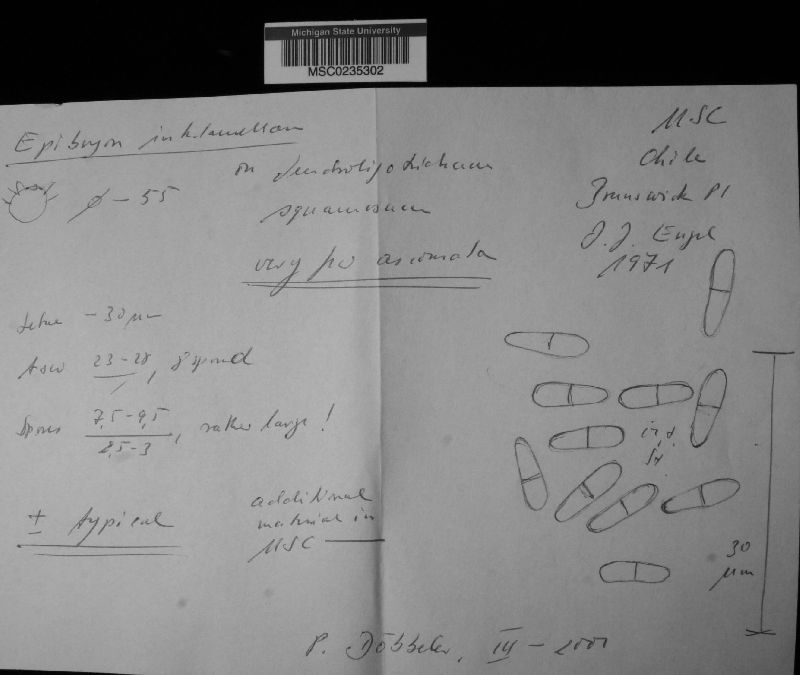 Michigan State University
MSC0235302
Epibryon interlamellare
MSC
Chile
Brunswick Pl
J. J. Engel
1971
on Dendroligotrichum
squamosum
ø – 55
very few ascomata
Setae – 30 µm
Asci 23–28, 8 spored
Spores 7,5–9,5 / 2,5–3, rather large!
± typical
additional
material in
MSC
30
µm
P. Döbbeler, III – 2001